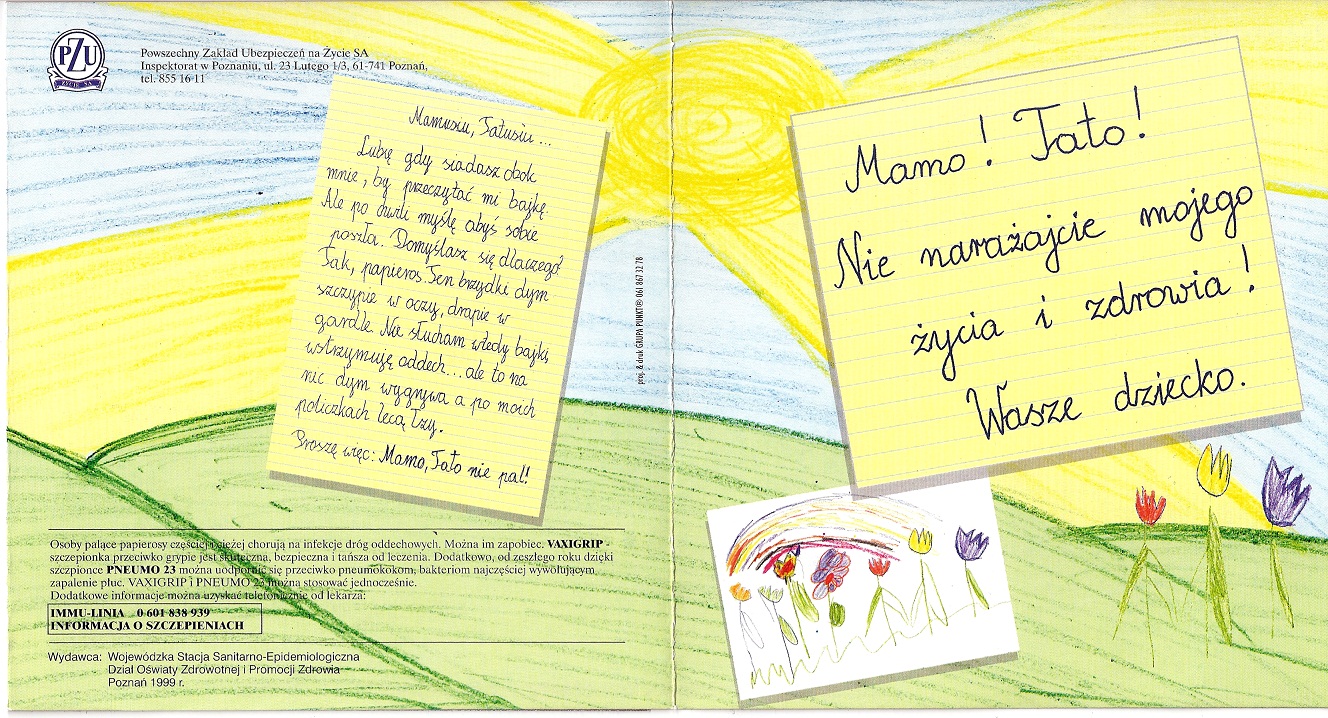 PZU
ŻYCIE SA
Powszechny Zakład Ubezpieczeń na Życie SA
Inspektorat w Poznaniu, ul. 23 Lutego 1/3, 61-741 Poznań,
tel. 855 16 11
Mamusiu, Tatusiu ...
Lubię gdy siadasz obok
mnie, by przeczytać mi bajkę.
Ale po chwili myślę abyś sobie
poszła. Domyślasz się dlaczego?
Tak, papieros. Ten brzydki dym
szczypie w oczy, drapie w
gardle. Nie słucham wtedy bajki,
wstrzymuję oddech... ale to na
nic dym wygrywa a po moich
policzkach lecą łzy.
Proszę więc: Mamo, Tato nie pal!
Osoby palące papierosy częściej i ciężej chorują na infekcje dróg oddechowych. Można im zapobiec. VAXIGRIP -
szczepionka przeciwko grypie jest skuteczna, bezpieczna i tańsza od leczenia. Dodatkowo, od zeszłego roku dzięki
szczepionce PNEUMO 23 można uodpornić się przeciwko pneumokokom, bakteriom najczęściej wywołującym
zapalenie płuc. VAXIGRIP i PNEUMO 23 można stosować jednocześnie.
Dodatkowe informacje można uzyskać telefonicznie od lekarza:
IMMU-LINIA 0 601 838 939
INFORMACJA O SZCZEPIENIACH
Wydawca: Wojewódzka Stacja Sanitarno-Epidemiologiczna
Dział Oświaty Zdrowotnej i Promocji Zdrowia
Poznań 1999 r.
proj. & druk GRUPA PUNKT® 061 867 32 78
Mamo! Tato!
Nie narażajcie mojego
życia i zdrowia!
Wasze dziecko.